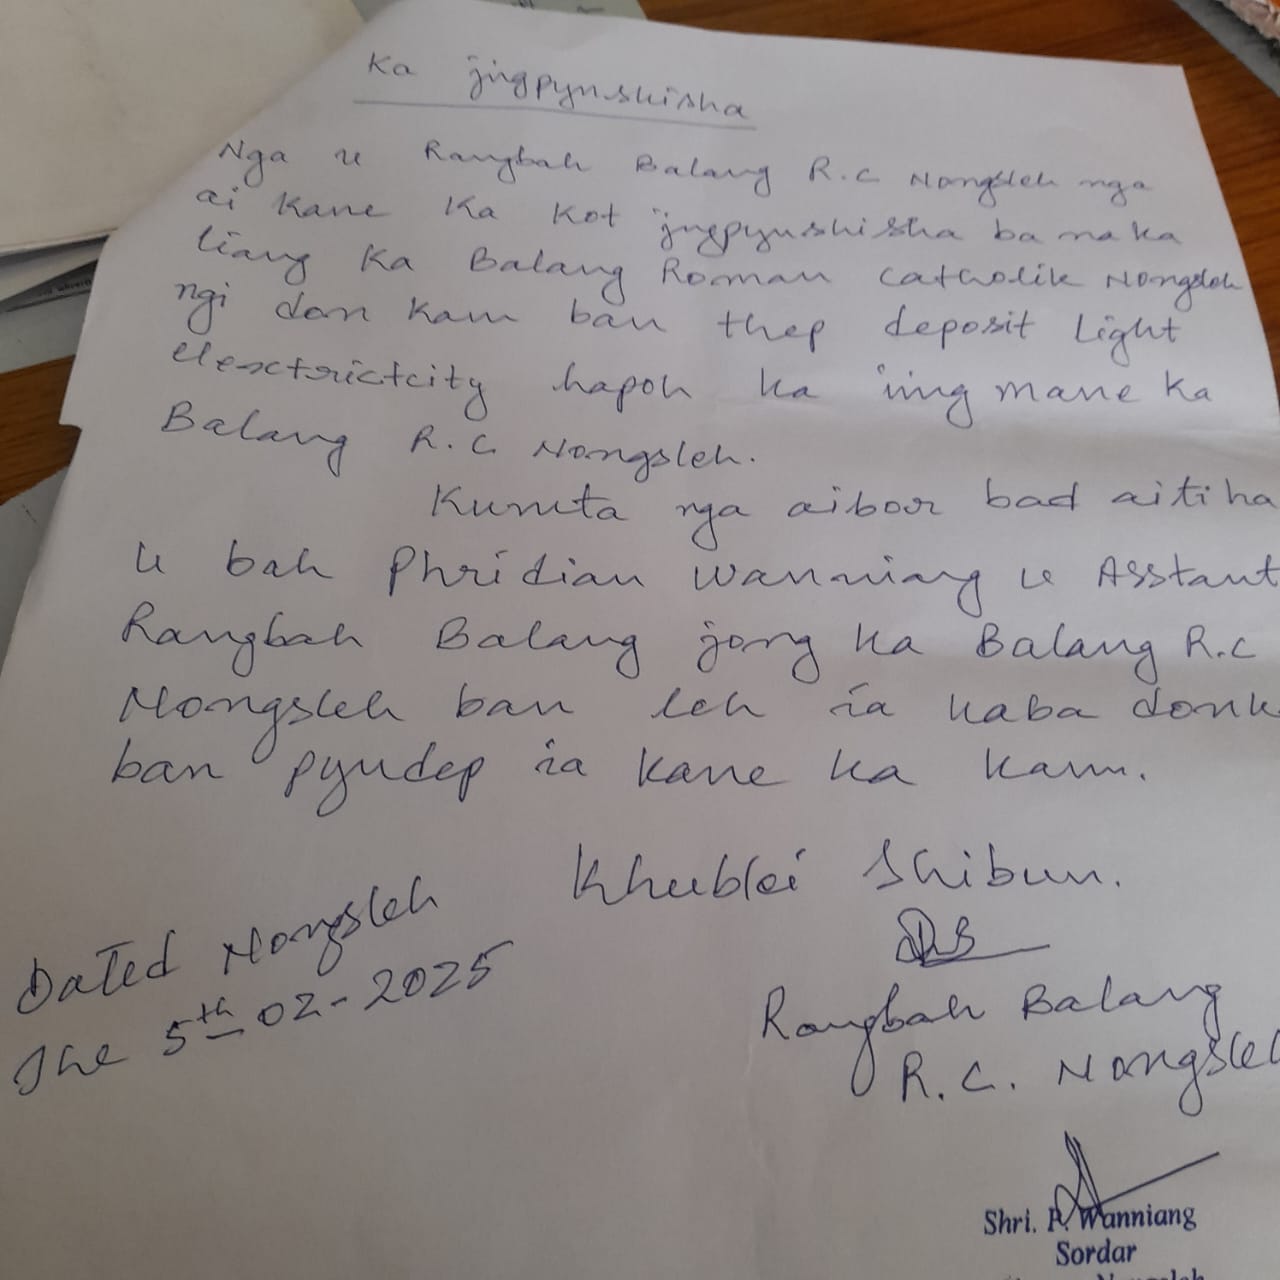 Ka jingpynshisha
Nga u Rangbah Balang R.C Nongsleh nga
ai kane ka kot jingpynshisha ba na ka
liang ka Balang Roman catholik Nongsleh
ngi don kam ban thep deposit Light
elesctrictcity hapoh ka ïing mane ka
Balang R.C Nongsleh.
Kumta nga aibor bad aiti ha
u bah Phridian Wanniang u Asstant
Rangbah Balang jong ka Balang R.C
Nongsleh ban leh ïa kaba donk
ban pyndep ïa kane ka kam.
Khublei Shibun.
Dated Nongsleh
The 5th-02-2025
Rangbah Balang
R.C. Nongsleh
Shri. P. Wanniang
Sordar